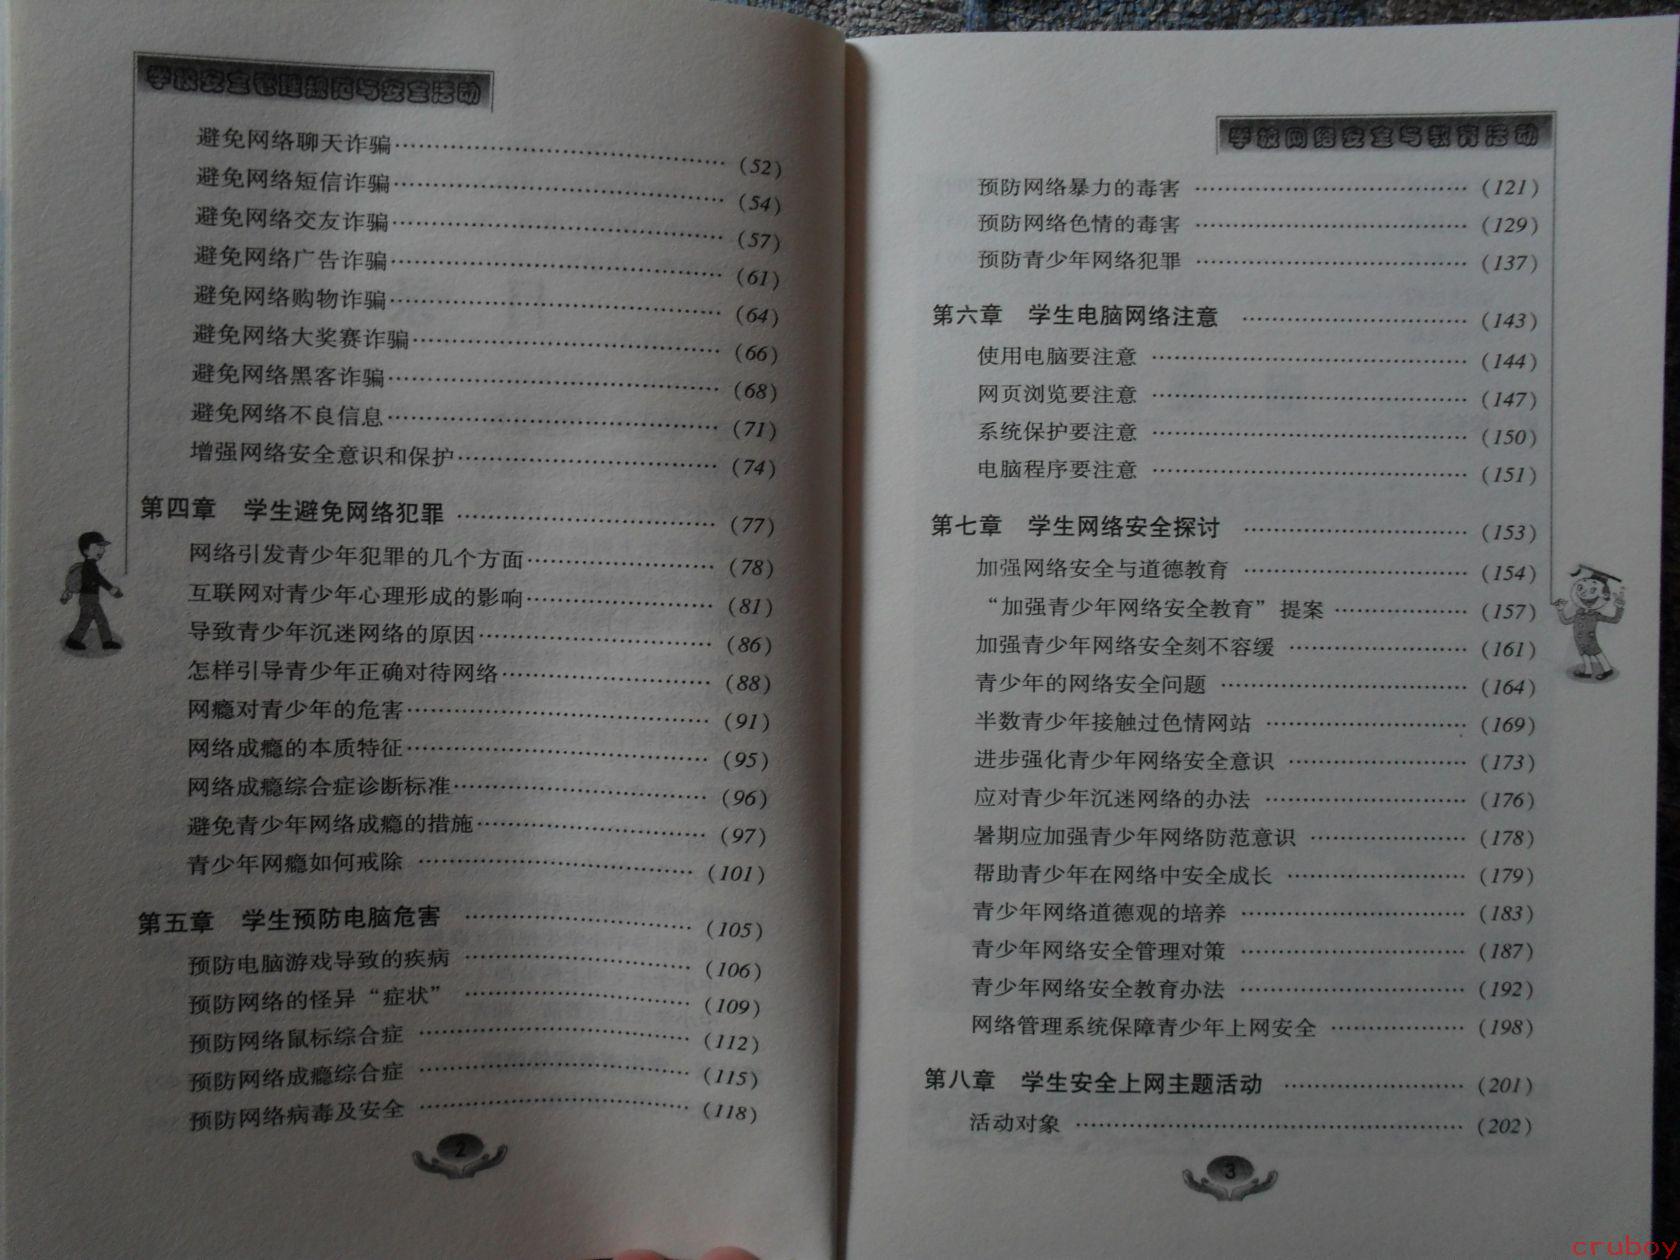 学校安全管理规范与安全活动
避免网络聊天诈骗……(52)
避免网络短信诈骗……(54)
避免网络交友诈骗……(57)
避免网络广告诈骗……(61)
避免网络购物诈骗……(64)
避免网络大奖赛诈骗……(66)
避免网络黑客诈骗……(68)
避免网络不良信息……(71)
增强网络安全意识和保护……(74)
第四章 学生避免网络犯罪……(77)
网络引发青少年犯罪的几个方面……(78)
互联网对青少年心理形成的影响……(81)
导致青少年沉迷网络的原因……(86)
怎样引导青少年正确对待网络……(88)
网瘾对青少年的危害……(91)
网络成瘾的本质特征……(95)
网络成瘾综合症诊断标准……(96)
避免青少年网络成瘾的措施……(97)
青少年网瘾如何戒除……(101)
第五章 学生预防电脑危害……(105)
预防电脑游戏导致的疾病……(106)
预防网络的怪异“症状”……(109)
预防网络鼠标综合症……(112)
预防网络成瘾综合症……(115)
预防网络病毒及安全……(118)
2
学校网络安全与教育活动
预防网络暴力的毒害……(121)
预防网络色情的毒害……(129)
预防青少年网络犯罪……(137)
第六章 学生电脑网络注意……(143)
使用电脑要注意……(144)
网页浏览要注意……(147)
系统保护要注意……(150)
电脑程序要注意……(151)
第七章 学生网络安全探讨……(153)
加强网络安全与道德教育……(154)
“加强青少年网络安全教育”提案……(157)
加强青少年网络安全刻不容缓……(161)
青少年的网络安全问题……(164)
半数青少年接触过色情网站……(169)
进步强化青少年网络安全意识……(173)
应对青少年沉迷网络的办法……(176)
暑期应加强青少年网络防范意识……(178)
帮助青少年在网络中安全成长……(179)
青少年网络道德观的培养……(183)
青少年网络安全管理对策……(187)
青少年网络安全教育办法……(192)
网络管理系统保障青少年上网安全……(198)
第八章 学生安全上网主题活动……(201)
活动对象……(202)
3
cruboy